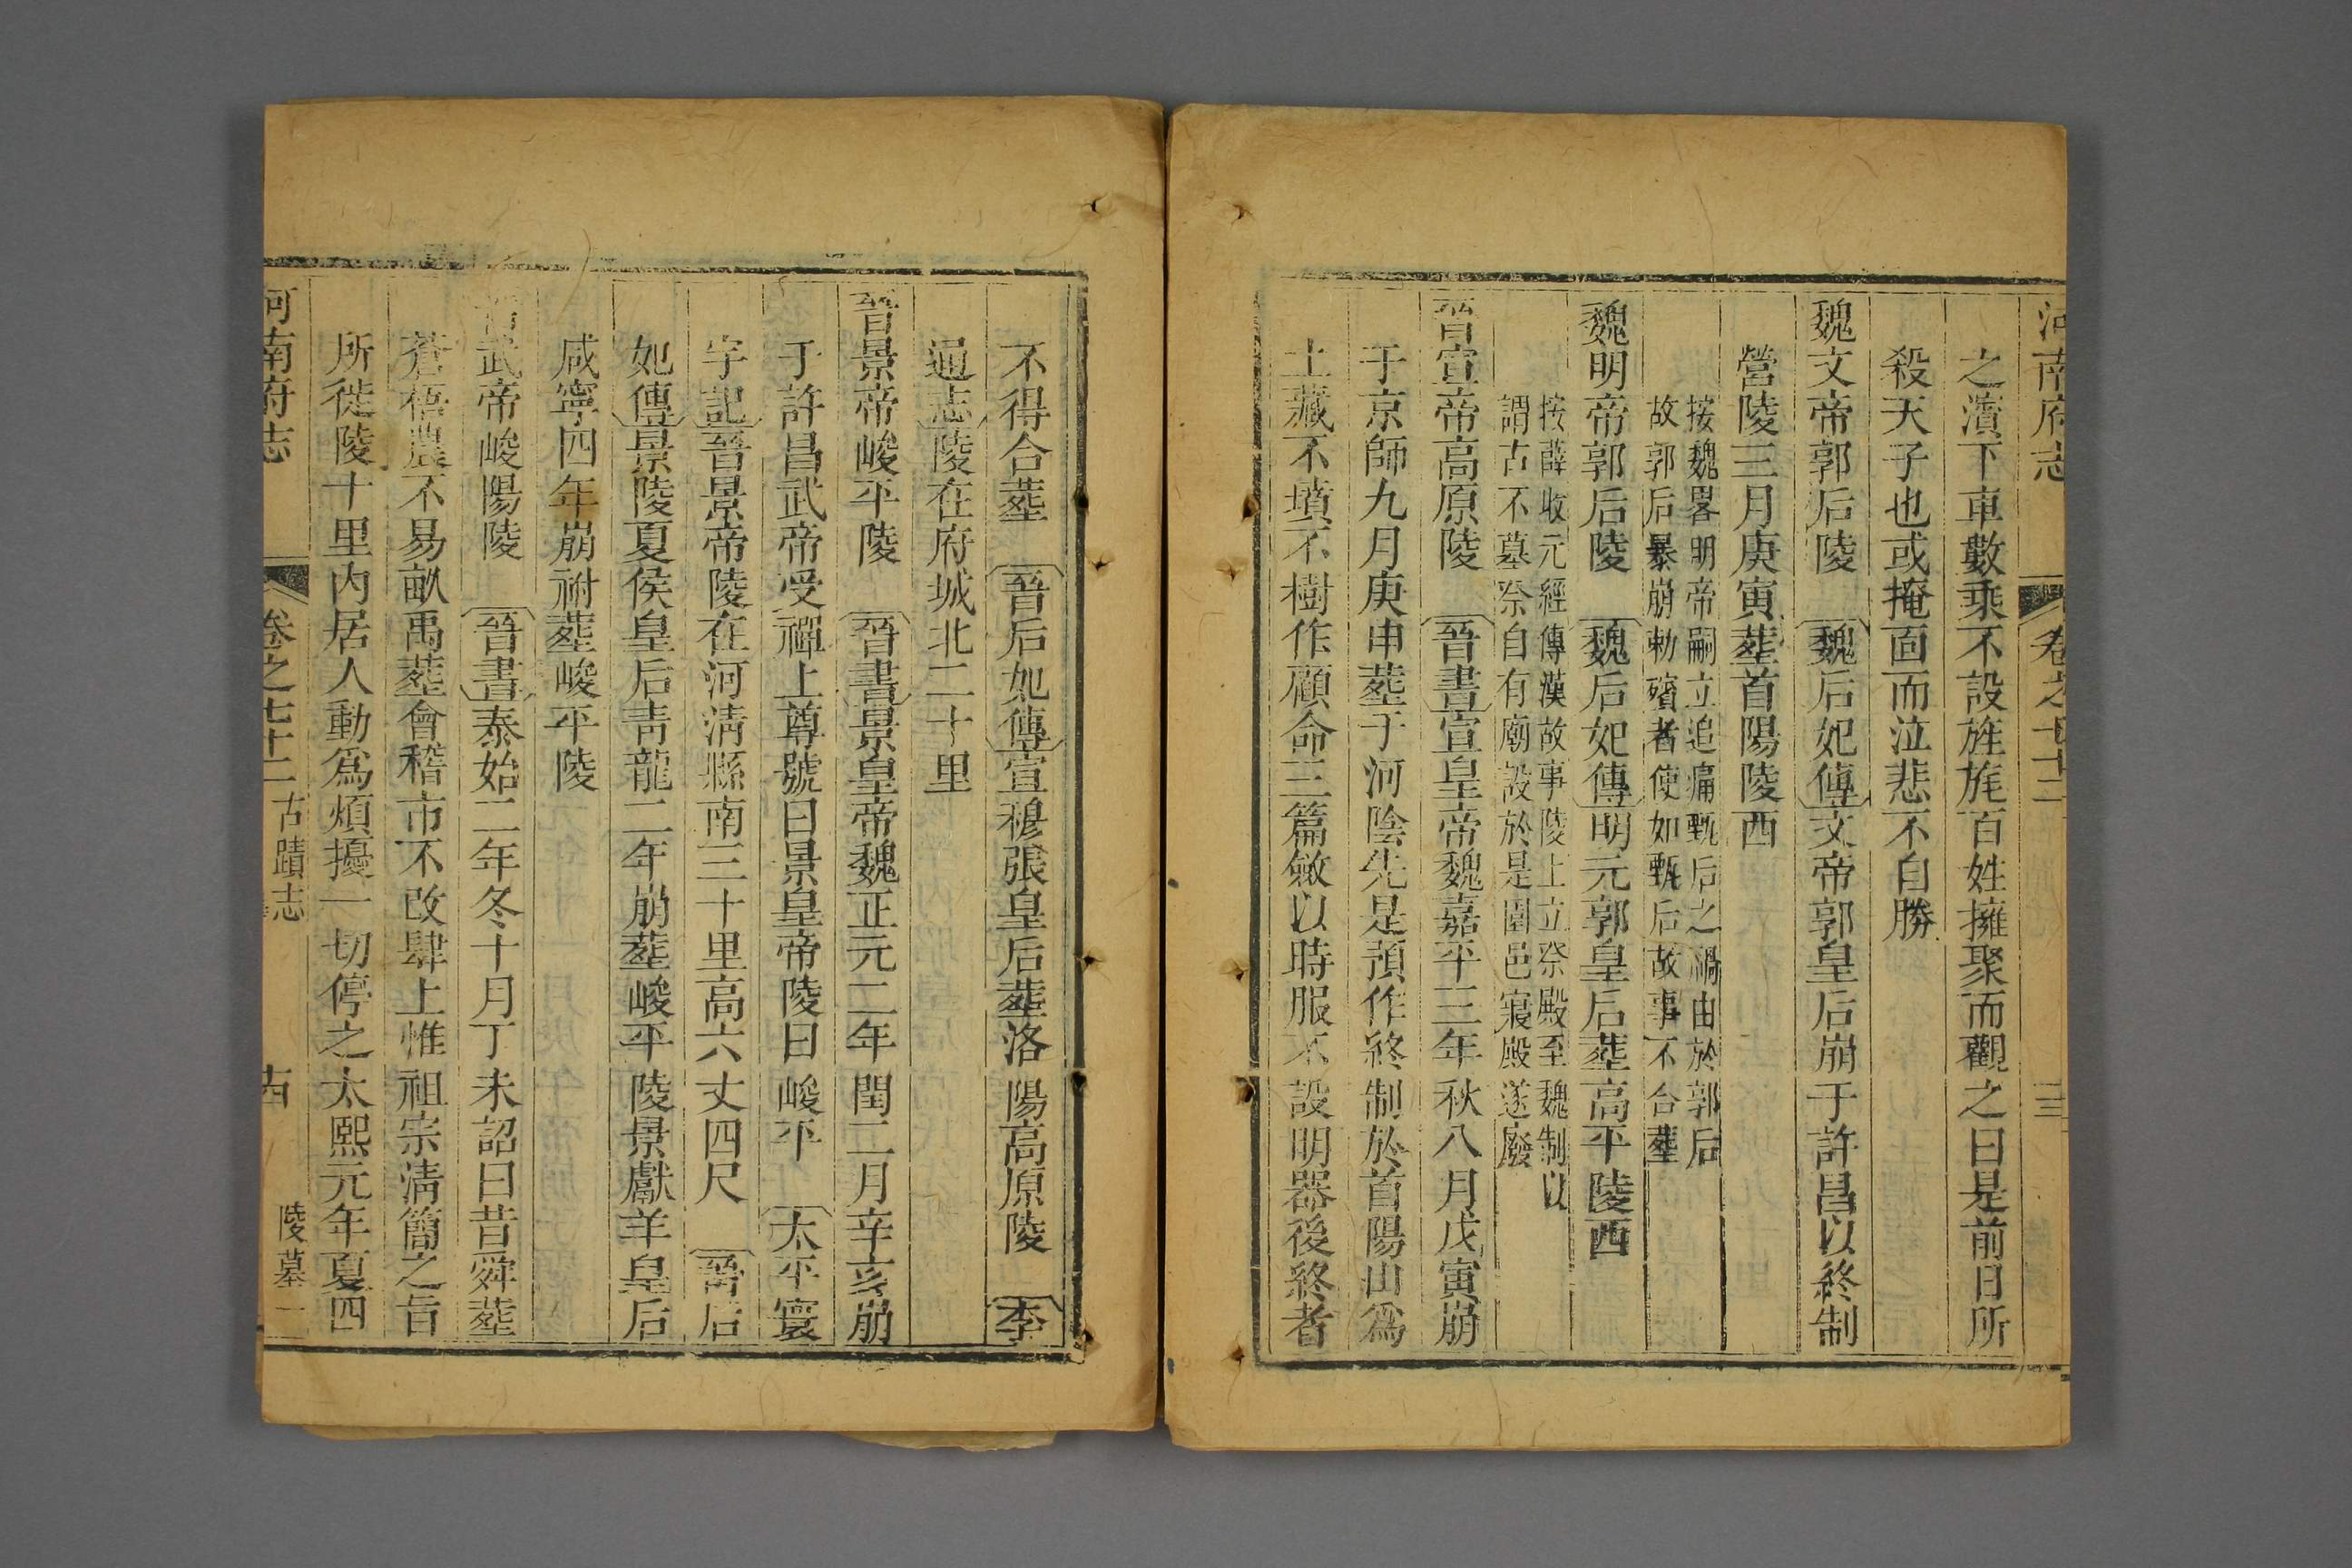 河南府志 卷之七十二 三
之濱下車數乘不設旌旄百姓擁聚而觀之曰是前日所
殺天子也或掩面而泣悲不自勝
魏文帝郭后陵 魏后妃傳文帝郭皇后崩于許昌以終制
營陵三月庚寅葬首陽陵西
按魏畧明帝嗣立追痛甄后之禍由於郭后
故郭后暴崩勅殯者使如甄后故事不合葬
魏明帝郭后陵 魏后妃傳明元郭皇后葬高平陵西
按薛收元經傳漢故事陵上立祭殿至魏制以
謂古不墓祭自有廟設於是園邑寢殿遂廢
晉宣帝高原陵 晉書宣皇帝魏嘉平三年秋八月戊寅崩
于京師九月庚申葬于河陰先是預作終制於首陽山爲
土藏不墳不樹作顧命三篇斂以時服不設明器後終者
不得合葬 晉后妃傳宣穆張皇后葬洛陽高原陵 李
通志陵在府城北二十里
晉景帝峻平陵 晉書景皇帝魏正元二年閏二月辛亥崩
于許昌武帝受禪上尊號曰景皇帝陵曰峻平 太平寰
宇記晉景帝陵在河淸縣南三十里高六丈四尺 晉后
妃傳景陵夏侯皇后靑龍二年崩葬峻平陵景獻羊皇后
咸寧四年崩祔葬峻平陵
晉武帝峻陽陵 晉書泰始二年冬十月丁未詔曰昔舜葬
蒼梧農不易畝禹葬會稽市不改肆上惟祖宗淸簡之旨
所徙陵十里內居人動爲煩擾一切停之太熙元年夏四
河南府志 卷之七十二 古蹟志 陵墓一 古